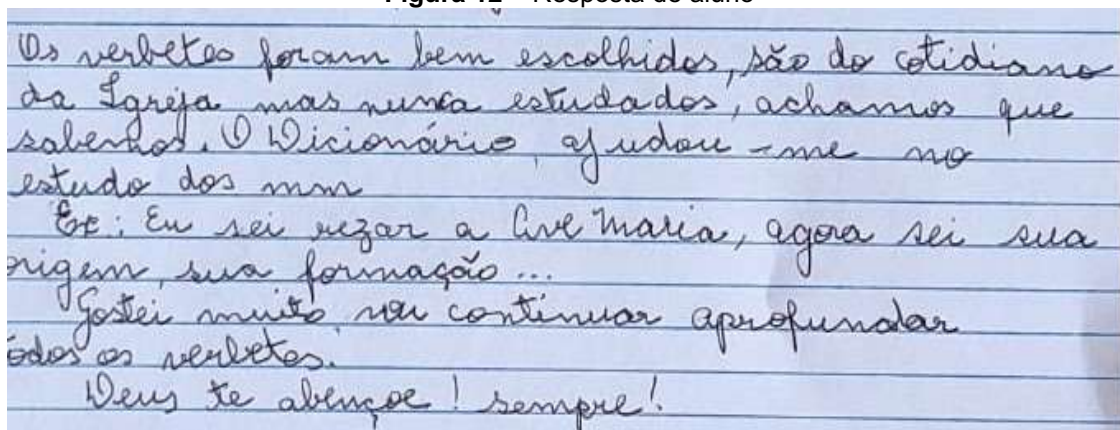 Figura 12 - Resposta do aluno
Os verbetes foram bem escolhidos, são do cotidiano
da Igreja mas nunca estudados, achamos que
sabemos. O Dicionário ajudou-me no
estudo dos mm
Ex: Eu sei rezar a Ave Maria, agora sei sua
origem, sua formação...
Gostei muito vou continuar aprofundar
odos os verbetes.
Deus te abençoe! sempre!